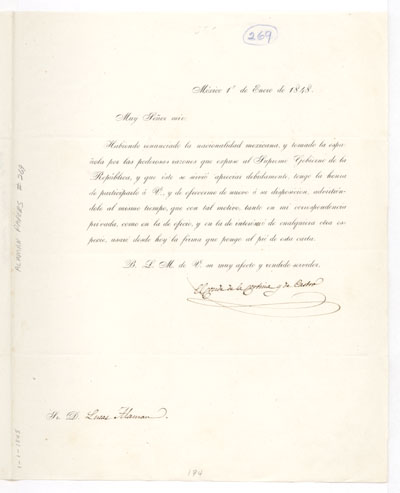 269
México 1º de Enero de 1848.
Muy Señor mio.
Habiendo renunciado la nacionalidad mexicana, y tomado la espa-
ñola por las poderosas razones que espuse al Supremo Gobierno de la
República, y que éste se sirvió apreciar debidamente, tengo la honra
de participarlo á V., y de ofrecerme de nuevo á su disposicion, advirtién-
dole al mismo tiempo, que con tal motivo, tanto en mi correspondencia
privada, como en la de oficio, y en la de intereses de cualquiera otra es-
pecie, usaré desde hoy la firma que pongo al pié de esta carta.
B. L. M. de V. su muy afecto y rendido servidor.
El Conde de la Cortina y de Castro
Sr. D. Lucas Alaman.
194
ALAMAN PAPERS # 269
1-1-1848